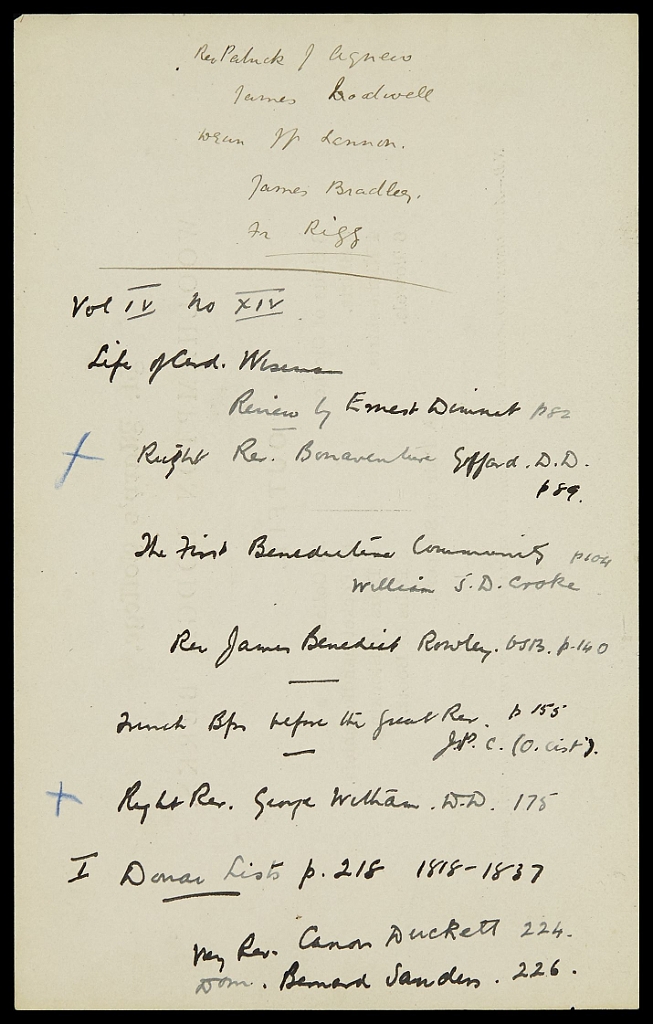 Rev Patrick J Agnew
James Brodwell
Dean J P Lennon.
James Bradley.
Fr Rigg
Vol IV No XIV
Life of Card. Wiseman
Review by Ernest Dimnet p82
Right Rev. Bonaventure Giffard. D.D.
p89.
The First Benedictine Community p104
William S.D. Croke
Rev James Benedict Rowley. OSB. p.140
French Bps before the Great Rev. p 155
J.P. C. (O. Cist).
Right Rev. George Witham. D.D. 175
I Douai Lists p. 218 1818-1837
Very Rev. Canon Duckett 224.
Dom. Bernard Sanders. 226.